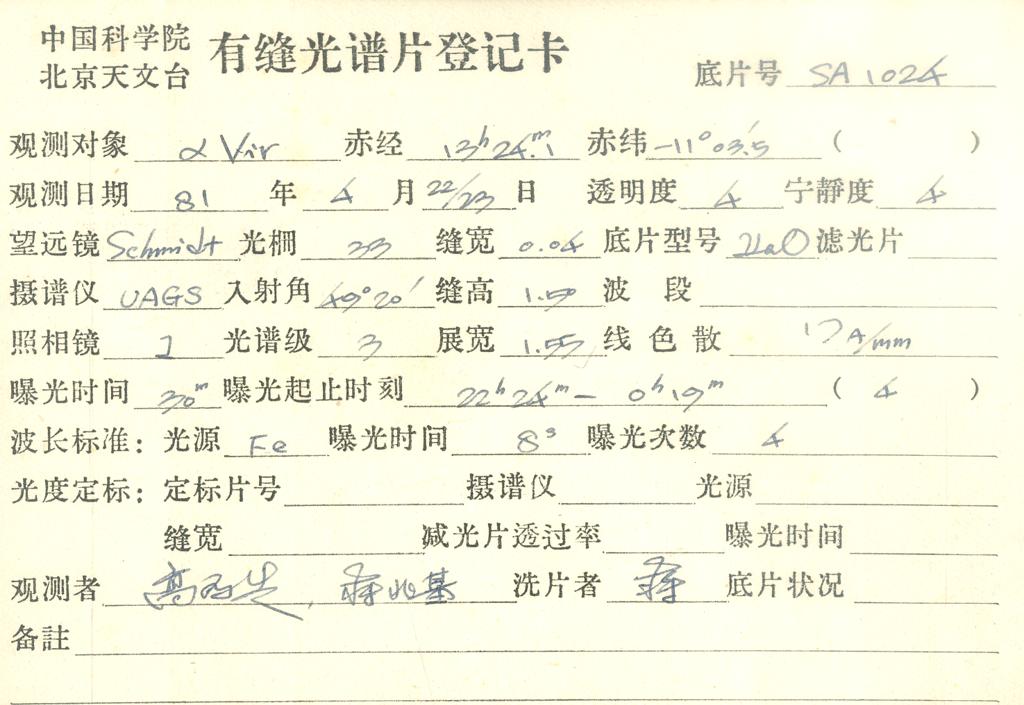 中国科学院
北京天文台
有缝光谱片登记卡
底片号 SA 1024
观测对象 α Vir 赤经 13ʰ24ᵐ.1 赤纬 -11°03′.5 ( )
观测日期 81 年 4 月 22/23 日 透明度 4 宁静度 4
望远镜 Schmidt 光栅 33 缝宽 0.04 底片型号 IIaO 滤光片
摄谱仪 UAGS 入射角 49°20′ 缝高 1.50 波段
照相镜 光谱级 3 展宽 线色散 17 A/mm
曝光时间 30ᵐ 曝光起止时刻 22ʰ24ᵐ — 0ʰ19ᵐ ( 4 )
波长标准: 光源 Fe 曝光时间 8ˢ 曝光次数 4
光度定标: 定标片号 摄谱仪 光源
缝宽 减光片透过率 曝光时间
观测者 蒋兆基 洗片者 蒋 底片状况
备註